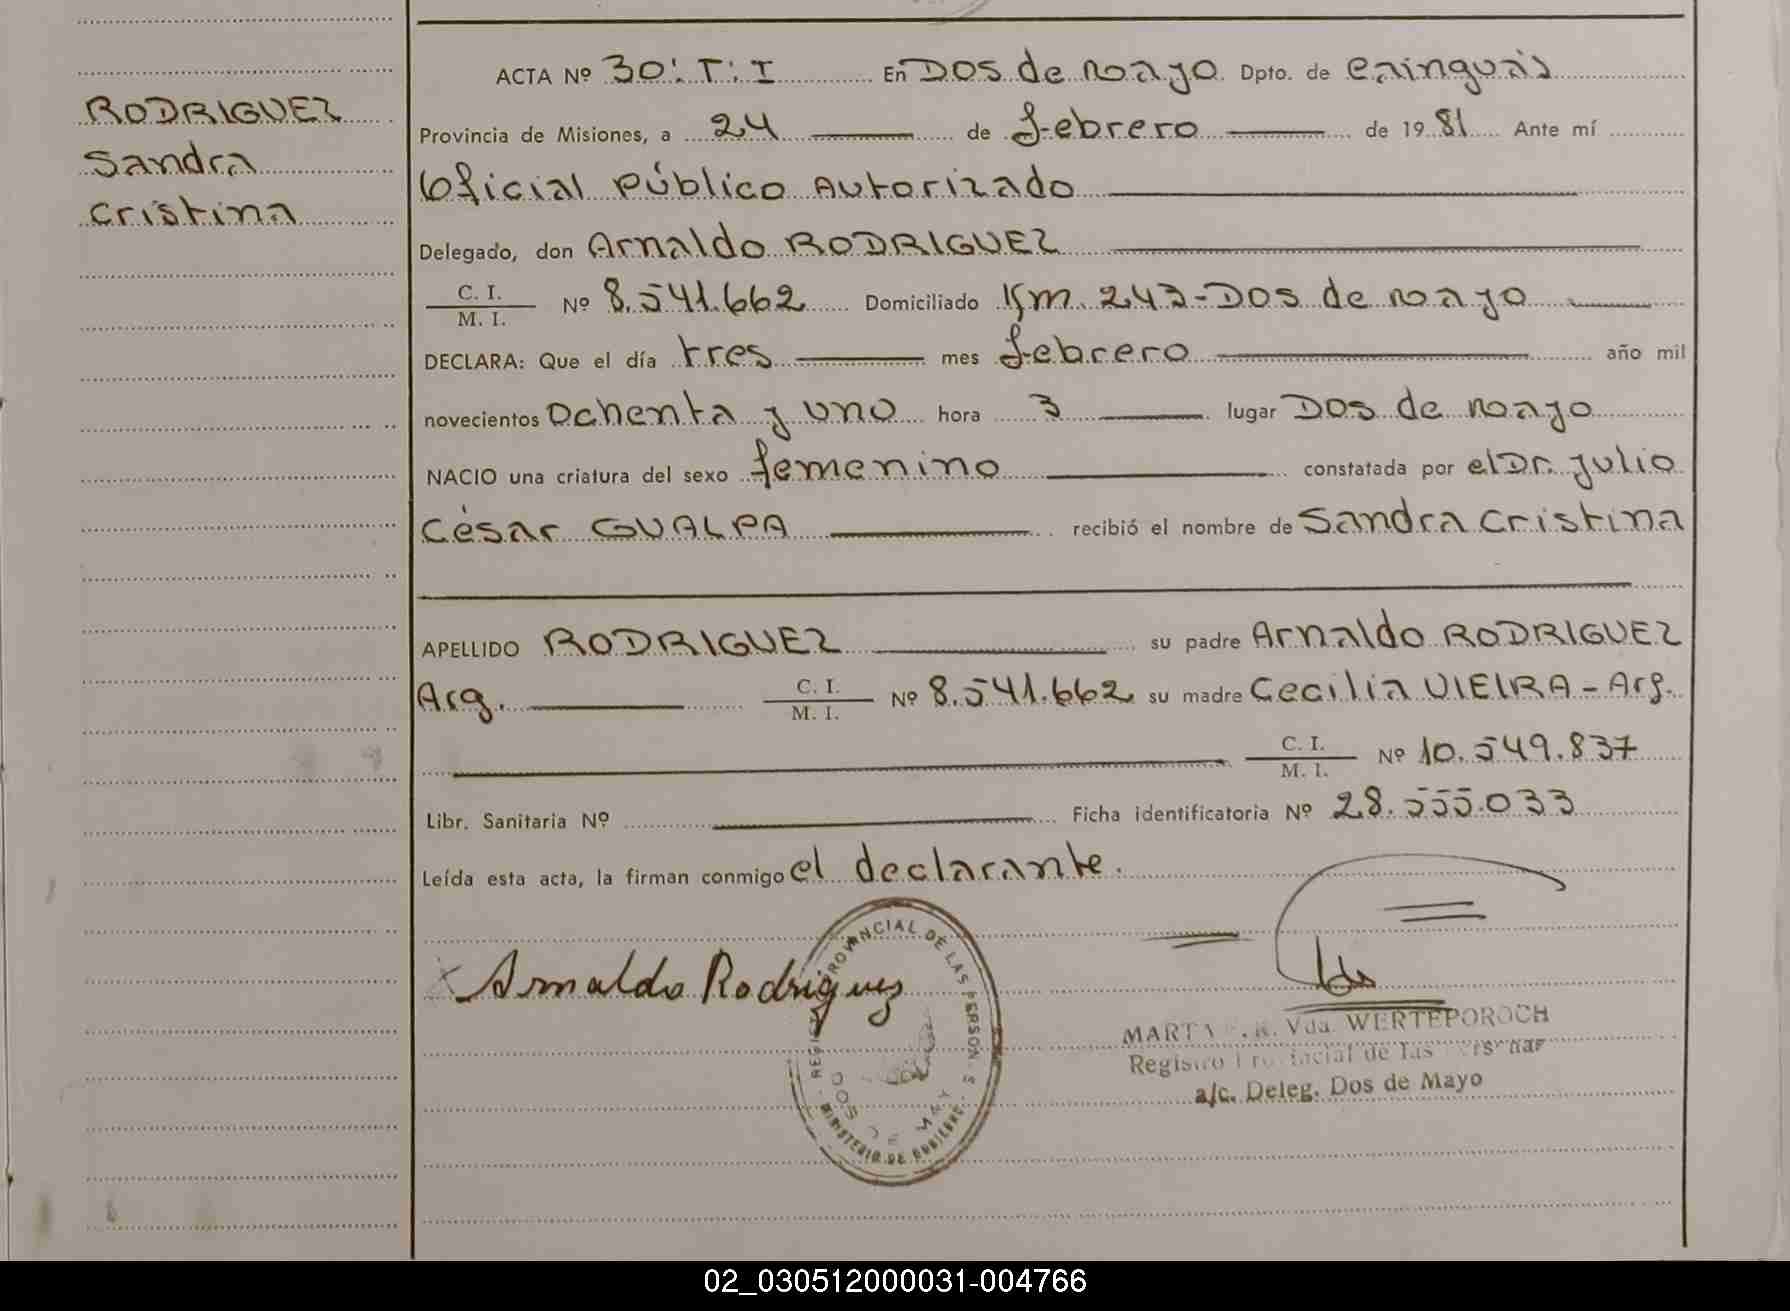 RODRIGUEZ
Sandra
Cristina
ACTA Nº 30: T: I En Dos de Mayo Dpto. de Cainguás
Provincia de Misiones, a 24 de febrero de 19 81 Ante mí
Oficial Público Autorizado
Delegado, don Arnaldo RODRIGUEZ
C. I.
M. I.
Nº 8.541.662 Domiciliado Km. 247-Dos de Mayo
DECLARA: Que el día tres mes febrero año mil
novecientos Ochenta y uno hora 3 lugar Dos de Mayo
NACIO una criatura del sexo femenino constatada por el Dr. Julio
César GUALPA recibió el nombre de Sandra Cristina
APELLIDO RODRIGUEZ su padre Arnaldo RODRIGUEZ
Arg. C. I. M. I. Nº 8.541.662 su madre Cecilia VIEIRA - Arg.
C. I. M. I. Nº 10.549.837
Libr. Sanitaria Nº Ficha identificatoria Nº 28.555.033
Leída esta acta, la firman conmigo el declarante.
Arnaldo Rodriguez
PROVINCIAL DE LAS PERSON S
MINISTERIO DE
DOS DE MAY
MARTA Vda. WERTEPOROCH
Registro Provincial de las
a/c. Deleg. Dos de Mayo
02_030512000031-004766